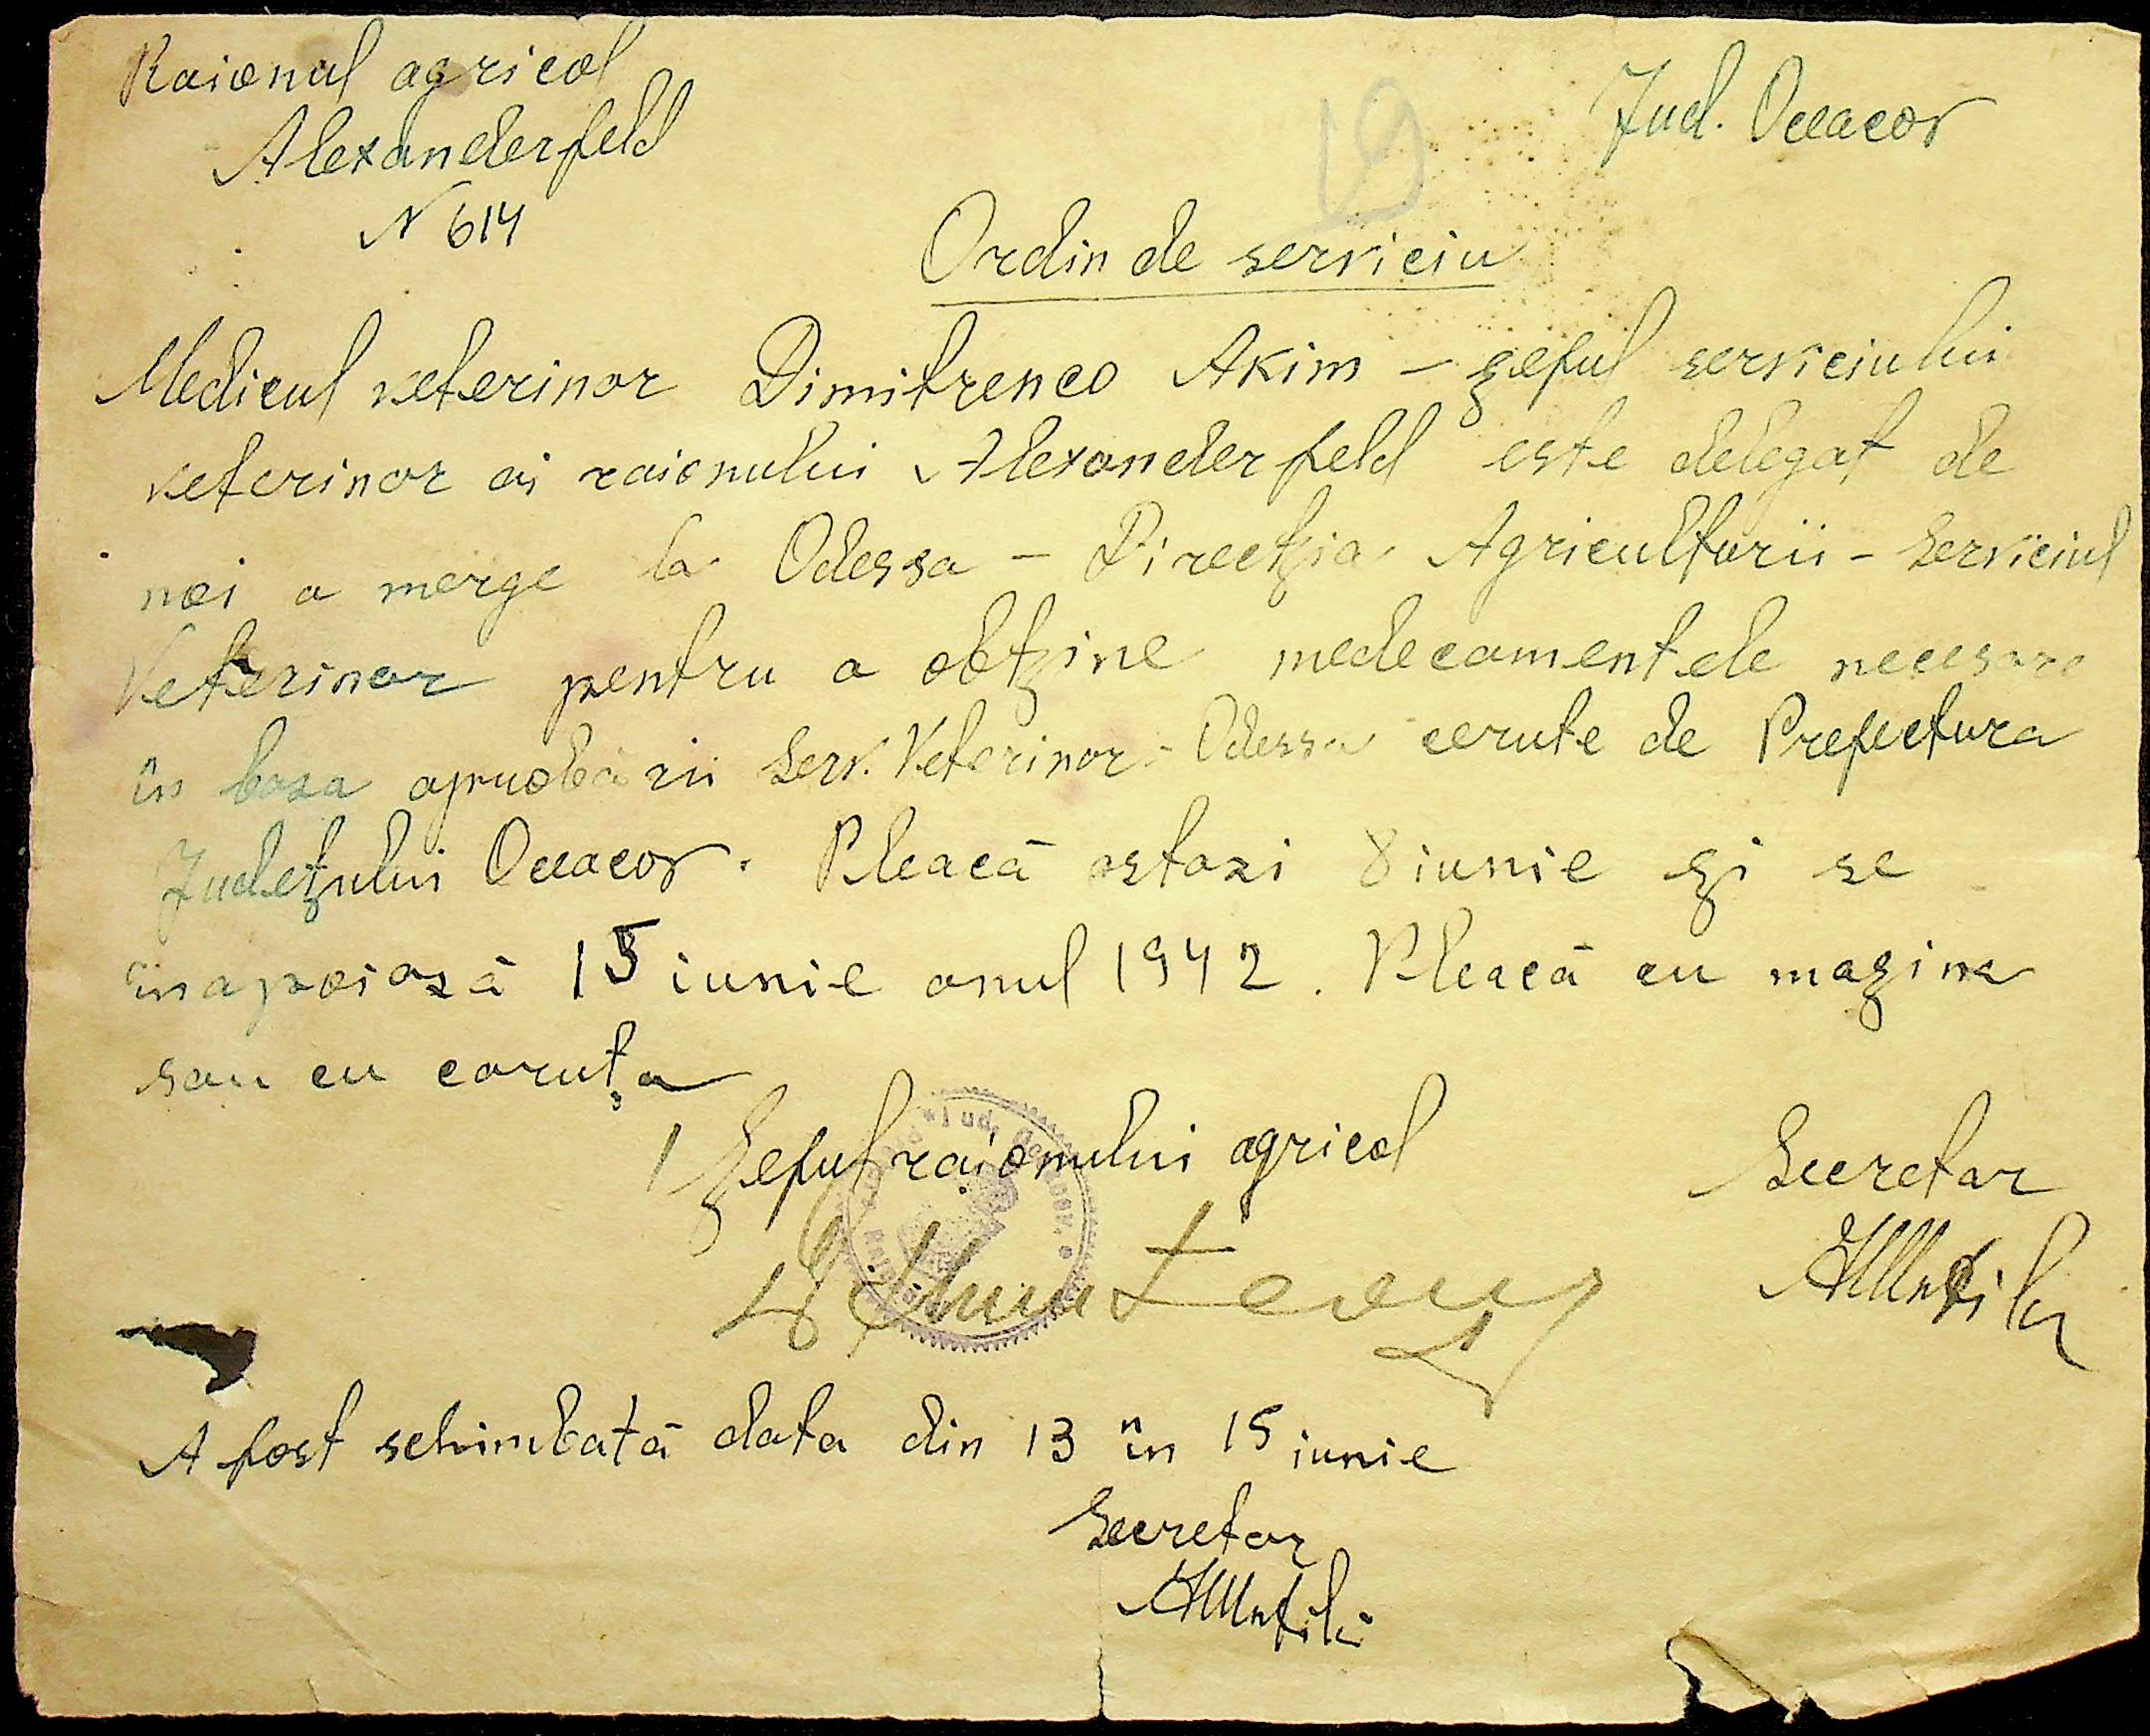 Raionul agricol
Alexanderfeld
N 614
Jud. Oceacov
Ordin de serviciu
Medicul veterinar Dimitrenco Akim – șeful serviciului
veterinar ai raionului Alexanderfeld este delegat de
noi a merge la Odessa – Direcția Agriculturii – Serviciul
Veterinar pentru a obtține medecamentele necesare
în baza apruobării Serv. Veterinar – Odessa cerute de Prefectura
Județului Oceacov. Pleacă astazi 8 iunie și se
inapoiază 15 iunie anul 1942. Pleacă cu mașina
sau cu caruța
Șeful raionului agricol
Secretar
A fost schimbată data din 13 în 15 iunie
Secretar